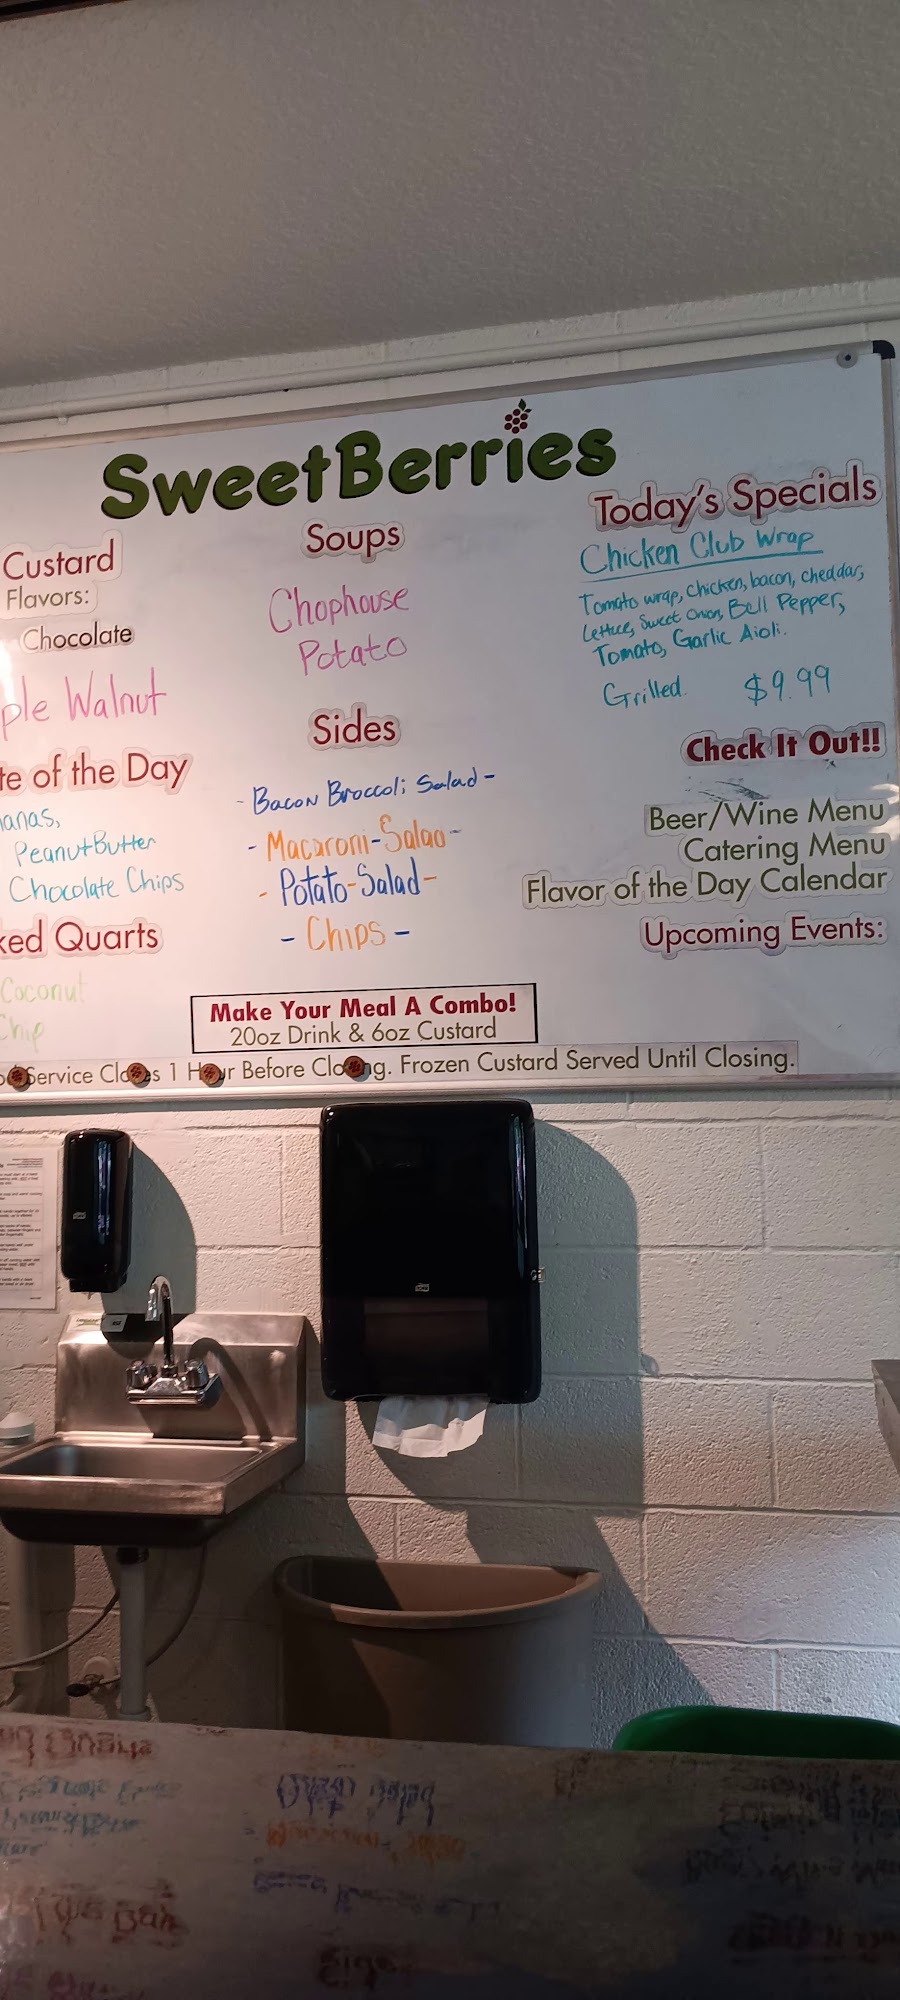 SweetBerries
Custard
Flavors:
Chocolate
Walnut
of the Day
Peanut Butter
Chocolate Chips
Quarts
Coconut
Chip
Soups
Chophouse
Potato
Sides
- Bacon Broccoli Salad -
- Macaroni-Salad-
- Potato-Salad-
- Chips -
Today's Specials
Chicken Club Wrap
Tomato wrap, chicken, bacon, cheddar,
Lettuce, Sweet Onion, Bell Pepper,
Tomato, Garlic Aioli.
Grilled. $9.99
Check It Out!!
Beer/Wine Menu
Catering Menu
Flavor of the Day Calendar
Upcoming Events:
Make Your Meal A Combo!
20oz Drink & 6oz Custard
Service Closes 1 Hour Before Closing. Frozen Custard Served Until Closing.